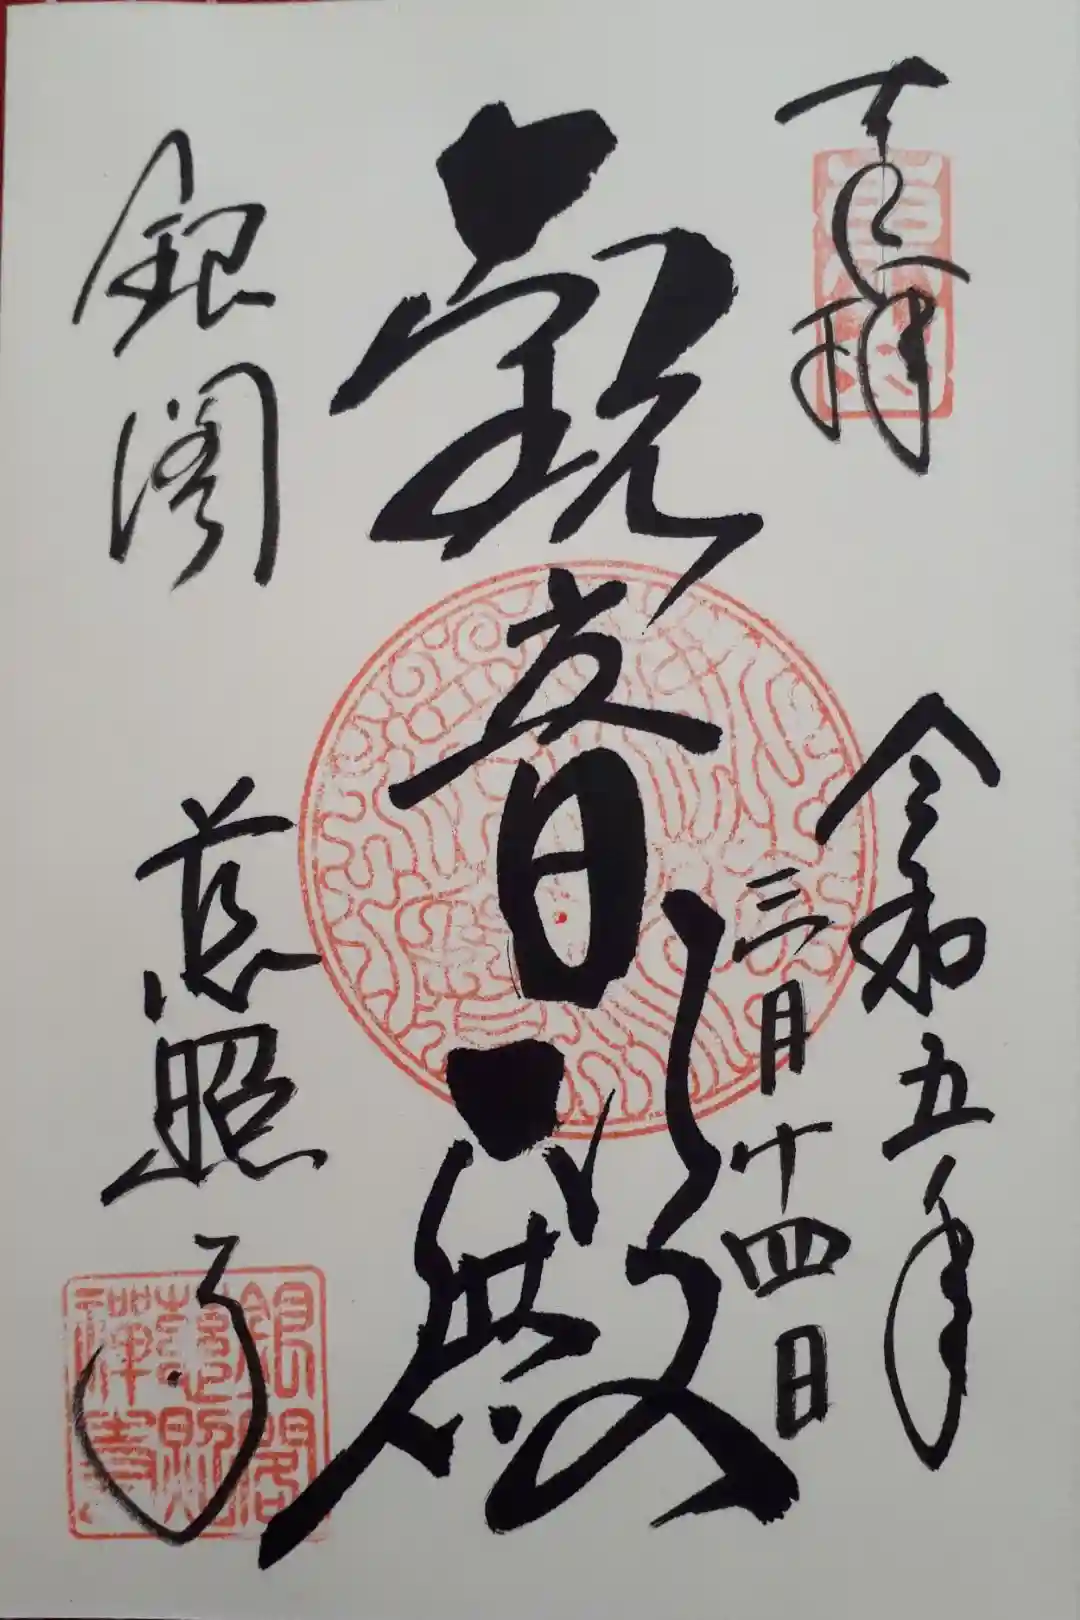 奉拝
令和五年
三月十四日
観音殿
銀閣
慈照寺
銀閣
慈照
禅寺